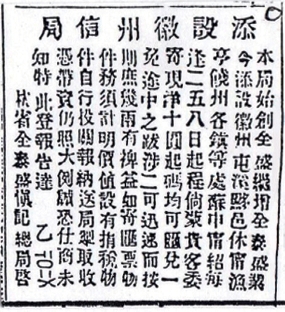 添設徽州信局
本局始創全盛繼增全泰盛茲
今添設徽州屯溪黟邑休甯漁
亭饒州各鎮等處蘇申甯紹每
逢二五八日起程倘蒙貴客委
寄現洋十圓起碼均可匯兌一
免途中之跋涉二可迅速而按
期庶幾兩有裨益如寄匯票物
件務須計明價值設有捐稅物
件自行投關報納送局取收
憑帶資仍照大例誠恐仕商未
知特此登報告達 乙
杭省全泰盛慎記總局啓